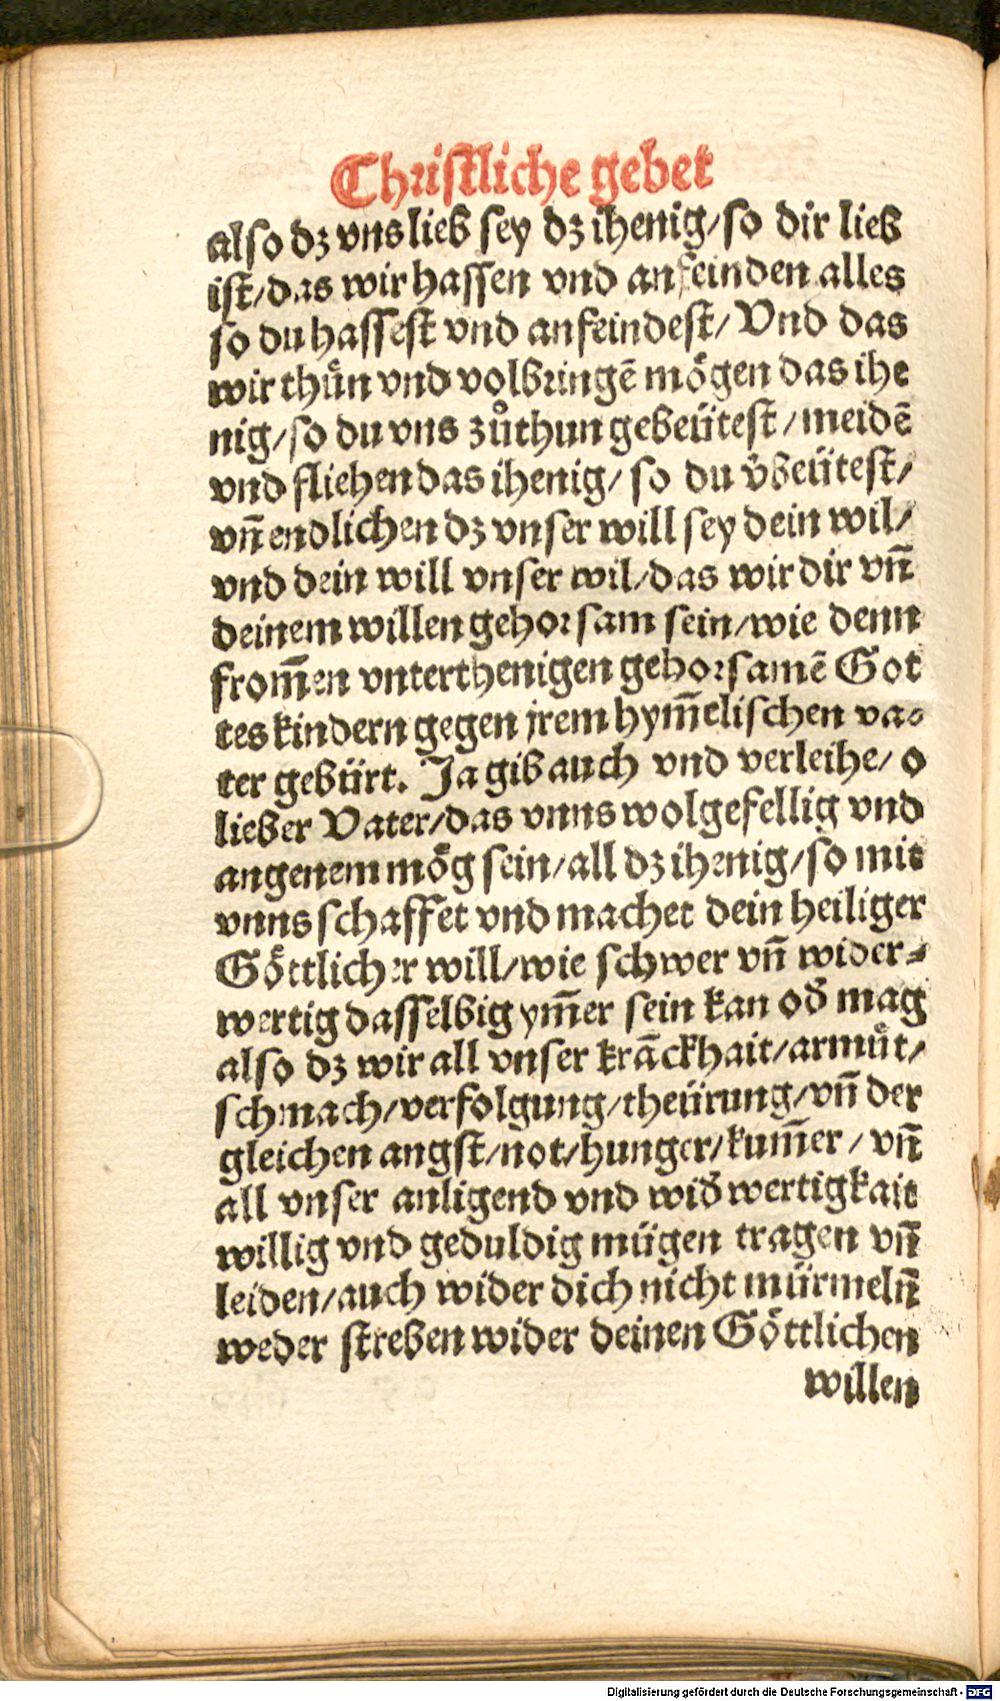 Christliche gebet
also dz vns lieb sey dz ihenig/so dir lieb
ist/das wir hassen vnd anfeinden alles
so du hassest vnd anfeindest/ Vnd das
wir thuͤn vnd volbringē moͤgen das ihe
nig/so du vns zuͦthun gebeütest/meidē
vnd fliehen das ihenig/ so du v̄beütest/
vn̄ endlichen dz vnser will sey dein wil/
vnd dein will vnser wil/das wir dir vn̄
deinem willen gehorsam sein/wie denn
from̄en vnterthenigen gehorsamē Got
tes kindern gegen jrem hym̄elischen va-
ter gebürt. Ja gib auch vnd verleihe/ o
lieber Vater/das vnns wolgefellig vnd
angenem moͤg sein/all dz ihenig/so mit
vnns schaffet vnd machet dein heiliger
Goͤttlicher will/wie schwer vn̄ wider-
wertig dasselbig ym̄er sein kan od̄ mag
also dz wir all vnser krāckhait/armuͤt/
schmach/verfolgung/theürung/vn̄ der
gleichen angst/not/hunger/kum̄er/ vn̄
all vnser anligend vnd wid̄wertigkait
willig vnd geduldig mügen tragen vn̄
leiden/auch wider dich nicht mürmeln̄
weder streben wider deinen Goͤttlichen
willen
Digitalisierung gefördert durch die Deutsche Forschungsgemeinschaft - DFG